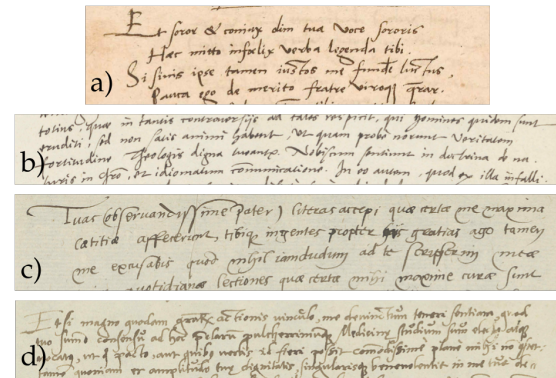 a)
Et soror & coniux dim tua voce sororis
Hæc mitto infœlix verba legenda tibi.
Si sinis ipse tamen iustos me funde luctus,
Pauca ego de merito fratre viroq querar.
b)
totius, quæ in tantis controversijs ad tales respicit, qui homines quidem sunt
eruditi, sed non satis animi habent, ut quam probe norunt veritatem
fortitudine Theologis digna tueantur. Nobiscum sentiunt in doctrina de na
turis in et idiomatum communicatione. In eo autem, quod ex illa infalli
c)
Tuae observandissime Pater literas accepi quæ certe me maxima
lætitia affecerunt, tibiq ingentes propter eas gratias ago tamen
me excusabis quod nihil iamdudum ad te scripserim meæ
quotidianæ lectiones quæ certe mihi maxime curæ sunt
d)
Etsi magno quodam vinculo, me teneri sentiam, quod
quo summo consensu ad hoc pulcherrimum Medicinæ studium
ut quo pacto, aut quibus verbis id fieri possit comodissime plane mihi
quoniam et amplitudo tuæ dignitatis, singularisq benevolentia in me tua